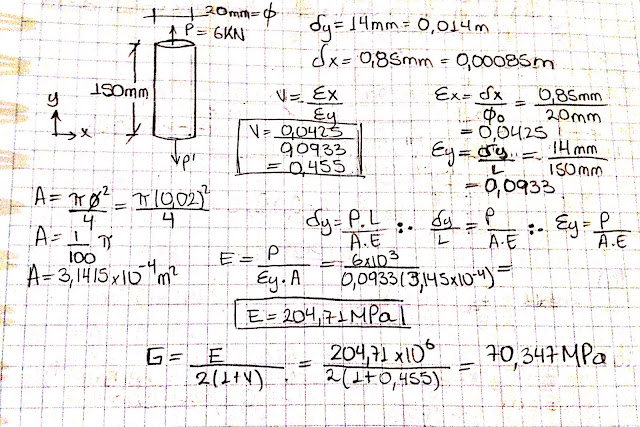 20mm=ϕ
P=6KN
150mm
y
x
P'
δy=14mm=0,014m
δx=0,85mm=0,00085m
V=εx/εy
V=0,0425/0,0933
=0,455
εx=δx/ϕ₀=0,85mm/20mm
=0,0425
εy=δy/L=14mm/150mm
=0,0933
A=πϕ²/4=π(0,02)²/4
A=1/100 π
A=3,1415x10⁻⁴m²
δy=P.L/A.E ∴ δy/L=P/A.E ∴ εy=P/A.E
E=P/εy.A=6x10³/0,0933(3,145x10⁻⁴)=
E=204,71MPa
G=E/2(1+V)=204,71x10⁶/2(1+0,455)=70,347MPa